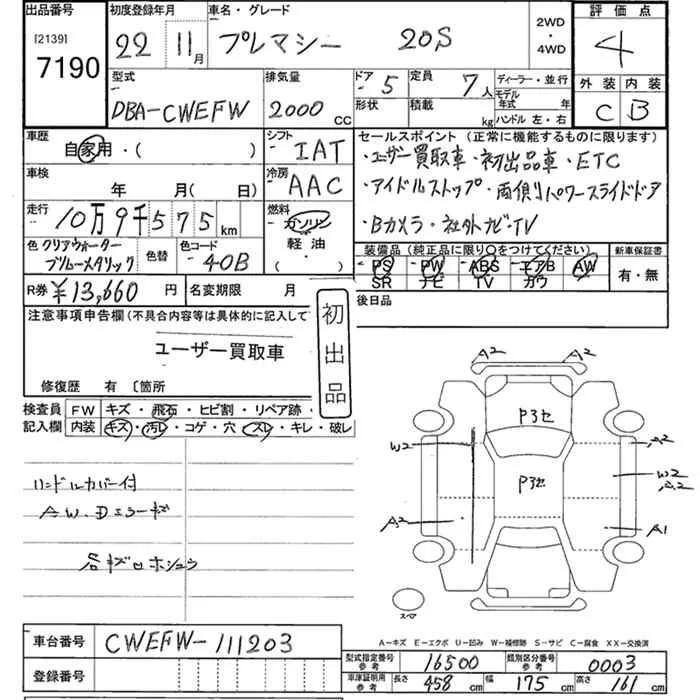 出品番号 初度登録年月 車名・グレード 2WD・4WD 評価点
[2139]
7190 22 11月 プレマシー 20S 4
型式 排気量 ドア 5 定員 7人 ディーラー・並行 外装 内装
DBA-CWEFW 2000 CC 形状 積載 kg モデル年式 年 ハンドル 左・右 C B
車歴 自家用・( ) シフト IAT セールスポイント (正常に機能するものに限ります)
・ユーザー買取車・初出品車・ETC
車検 年 月( 日) 冷房 AAC ・アイドルストップ・両側パワースライドドア
走行 10万9千575km 燃料 ガソリン ・Bカメラ・社外ナビ・TV
色 クリアウォーターブルーメタリック 色替 色コード 40B 軽油 ( )
装備品 (純正品に限り○をつけてください) 新車保証書
PS PW ABS エアB AW 有・無
SR ナビ TV カワ
R券 ¥13,660円 名変期限 月 後日品
注意事項申告欄 (不具合内容等は具体的に記入して
初出品
ユーザー買取車
修復歴 有 〔箇所
検査員 FW キズ・飛石・ヒビ割・リペア跡・
記入欄 内装 キズ・汚レ・コゲ・穴・スレ・キレ・破レ
ハンドルカバー付
AW.Dエラーキズ
A2 A2
P3セ
W2 A2
P3セ W2
A2 A1
A-キズ E-エクボ U-凹み W-補修跡 S-サビ C-腐食 XX-交換済
車台番号 CWEFW-111203
型式指定番号 参考 16500 類別区分番号 参考 0003
登録番号 車庫証明用 参考 長さ 458cm 幅 175cm 高さ 161cm